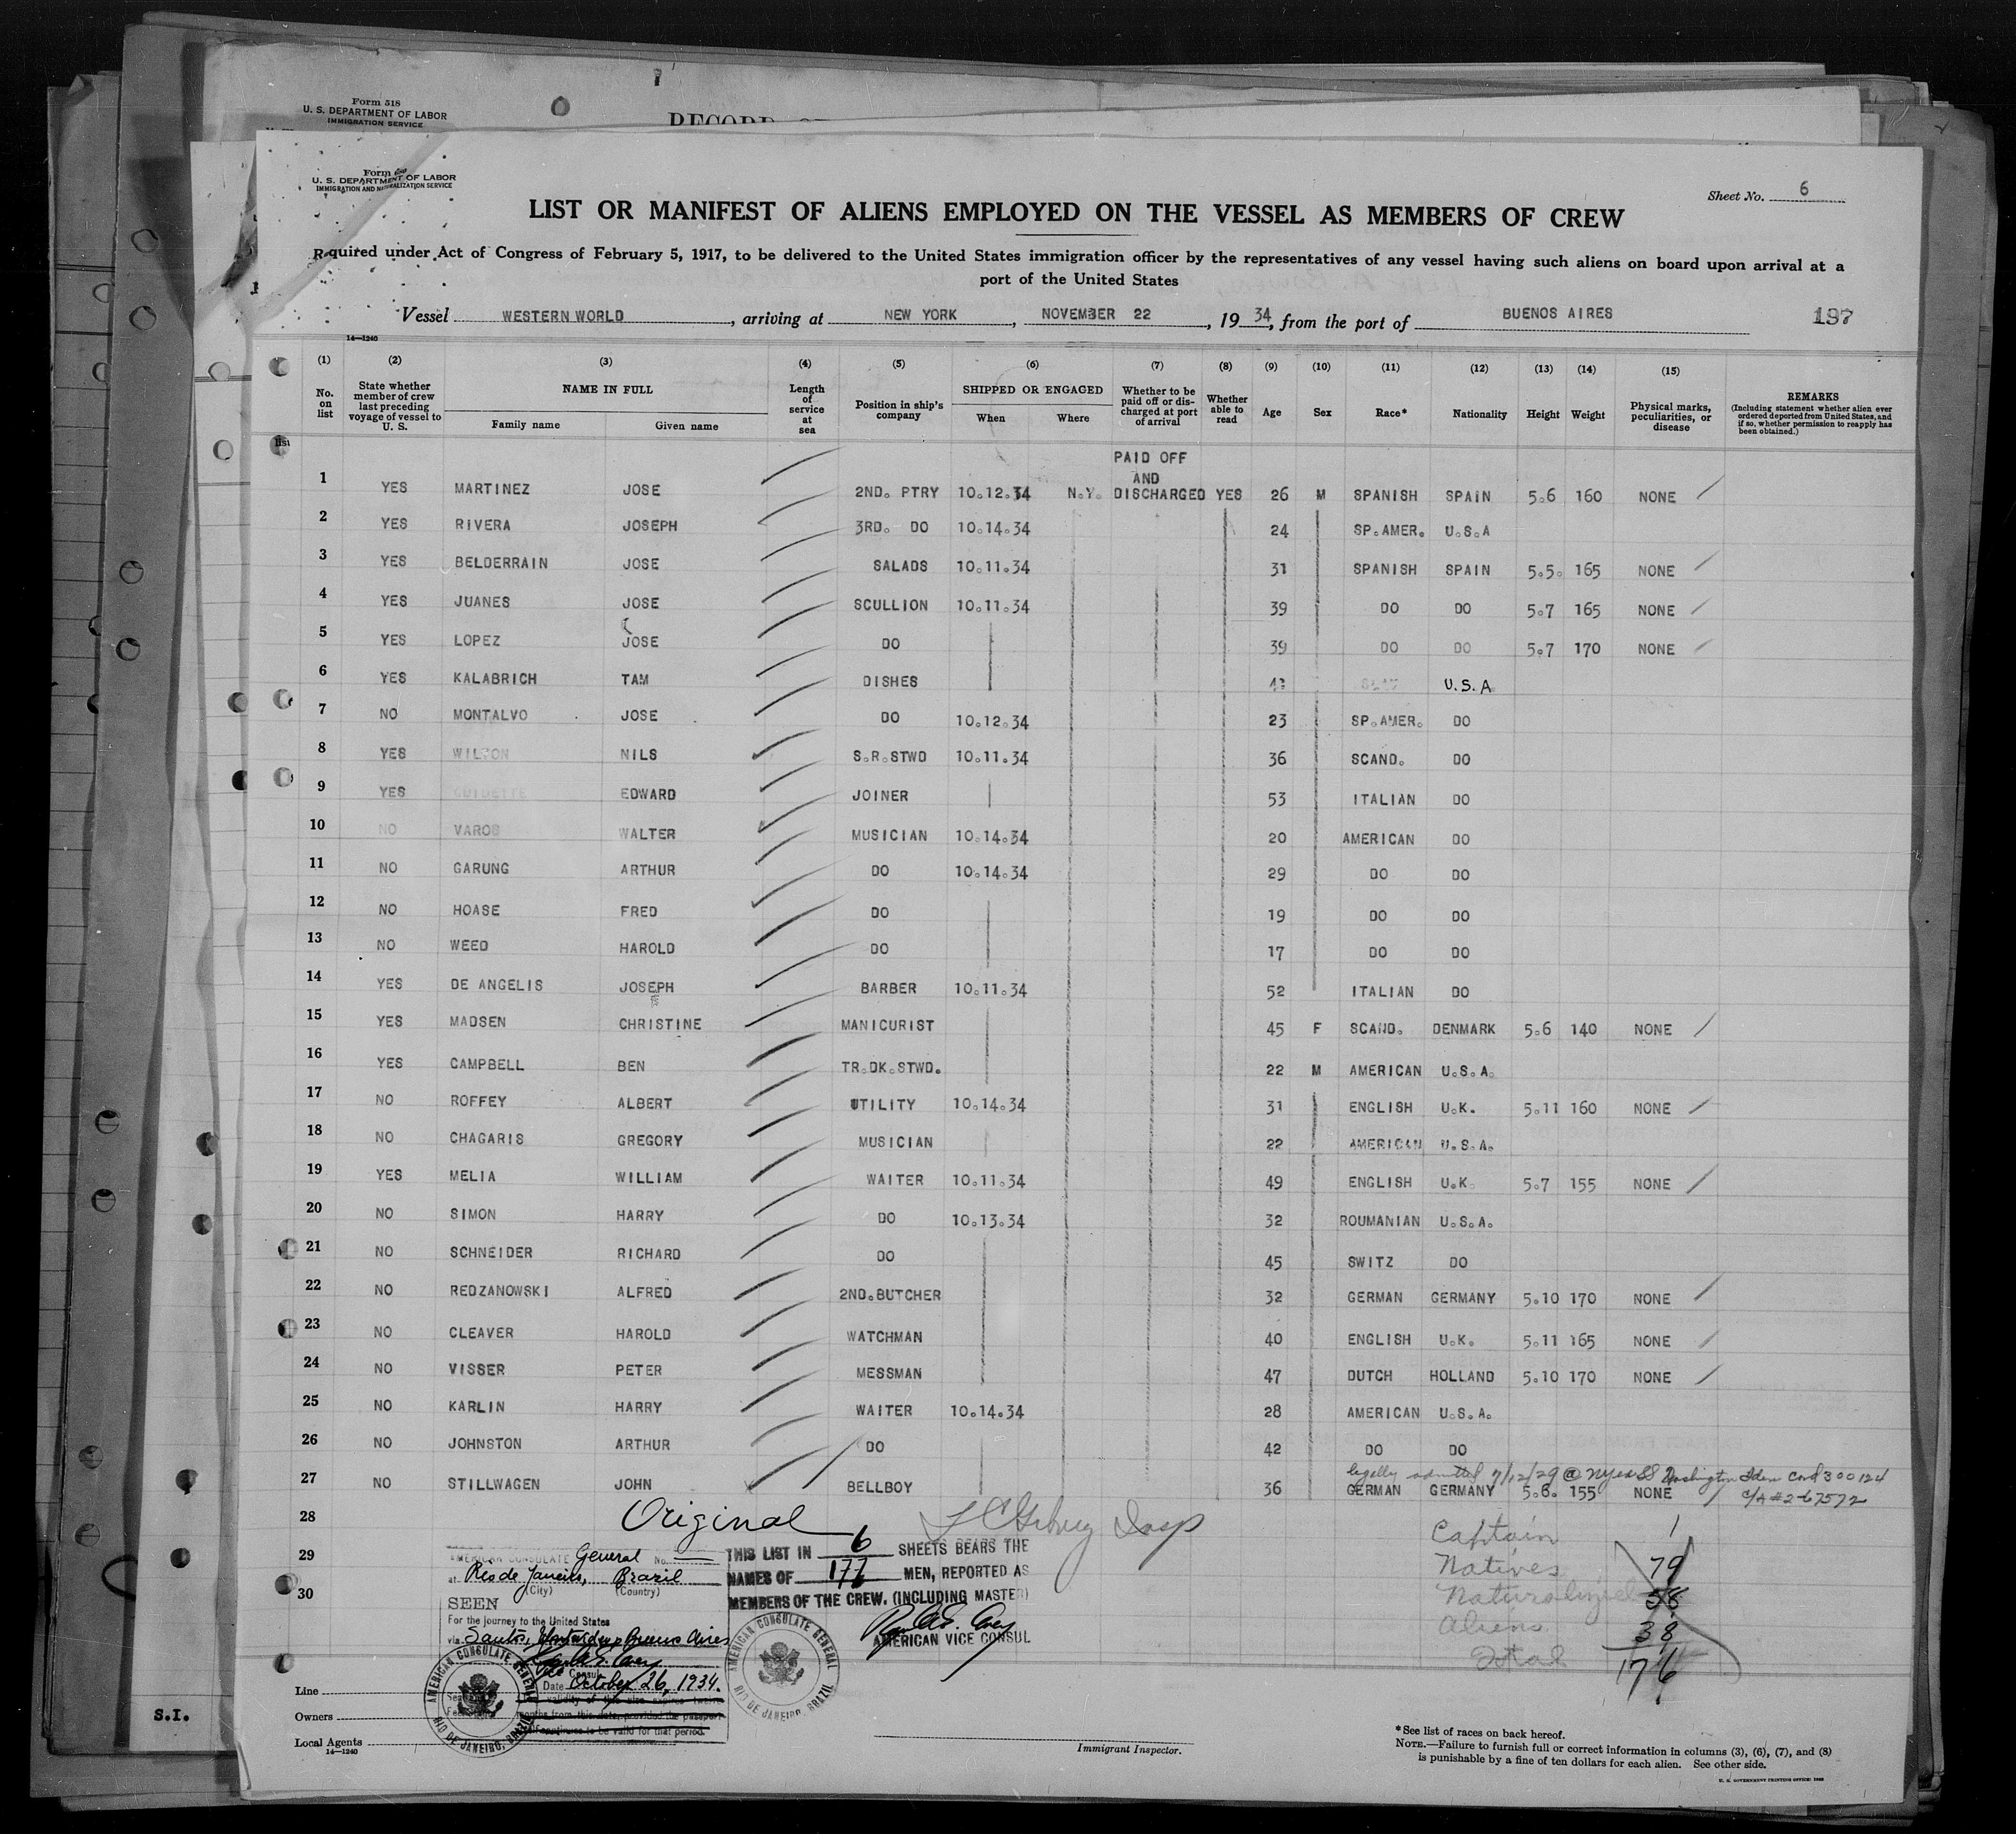 Form 518
U. S. DEPARTMENT OF LABOR
IMMIGRATION SERVICE
RECORD
Form
U. S. DEPARTMENT OF LABOR
IMMIGRATION AND NATURALIZATION SERVICE
Sheet No. 6
LIST OR MANIFEST OF ALIENS EMPLOYED ON THE VESSEL AS MEMBERS OF CREW
Required under Act of Congress of February 5, 1917, to be delivered to the United States immigration officer by the representatives of any vessel having such aliens on board upon arrival at a
port of the United States
Vessel WESTERN WORLD, arriving at NEW YORK, NOVEMBER 22, 19 34, from the port of BUENOS AIRES 197
14—1240
(1) (2) (3) (4) (5) (6) (7) (8) (9) (10) (11) (12) (13) (14) (15)
No. on list
State whether member of crew last preceding voyage of vessel to U. S.
NAME IN FULL
Family name Given name
Length of service at sea
Position in ship's company
SHIPPED OR ENGAGED
When Where
Whether to be paid off or discharged at port of arrival
Whether able to read
Age Sex Race* Nationality Height Weight
Physical marks, peculiarities, or disease
REMARKS
(Including statement whether alien ever ordered deported from United States, and if so, whether permission to reapply has been obtained.)
list
PAID OFF
AND
1 YES MARTINEZ JOSE 2ND. PTRY 10.12.34 N.Y. DISCHARGED YES 26 M SPANISH SPAIN 5.6 160 NONE
2 YES RIVERA JOSEPH 3RD. DO 10.14.34 24 SP.AMER. U.S.A
3 YES BELDERRAIN JOSE SALADS 10.11.34 31 SPANISH SPAIN 5.5. 165 NONE
4 YES JUANES JOSE SCULLION 10.11.34 39 DO DO 5.7 165 NONE
5 YES LOPEZ JOSE DO 39 DO DO 5.7 170 NONE
6 YES KALABRICH TAM DISHES U.S.A
7 NO MONTALVO JOSE DO 10.12.34 23 SP.AMER. DO
8 YES NILS S.R.STWD 10.11.34 36 SCAND. DO
9 YES EDWARD JOINER 53 ITALIAN DO
10 NO VAROS WALTER MUSICIAN 10.14.34 20 AMERICAN DO
11 NO GARUNG ARTHUR DO 10.14.34 29 DO DO
12 NO HOASE FRED DO 19 DO DO
13 NO WEED HAROLD DO 17 DO DO
14 YES DE ANGELIS JOSEPH BARBER 10.11.34 52 ITALIAN DO
15 YES MADSEN CHRISTINE MANICURIST 45 F SCAND. DENMARK 5.6 140 NONE
16 YES CAMPBELL BEN TR.DK.STWD. 22 M AMERICAN U.S.A.
17 NO ROFFEY ALBERT UTILITY 10.14.34 31 ENGLISH U.K. 5.11 160 NONE
18 NO CHAGARIS GREGORY MUSICIAN 22 AMERICAN U.S.A.
19 YES MELIA WILLIAM WAITER 10.11.34 49 ENGLISH U.K. 5.7 155 NONE
20 NO SIMON HARRY DO 10.13.34 32 ROUMANIAN U.S.A.
21 NO SCHNEIDER RICHARD DO 45 SWITZ DO
22 NO REDZANOWSKI ALFRED 2ND.BUTCHER 32 GERMAN GERMANY 5.10 170 NONE
23 NO CLEAVER HAROLD WATCHMAN 40 ENGLISH U.K. 5.11 165 NONE
24 NO VISSER PETER MESSMAN 47 DUTCH HOLLAND 5.10 170 NONE
25 NO KARLIN HARRY WAITER 10.14.34 28 AMERICAN U.S.A.
26 NO JOHNSTON ARTHUR DO 42 DO DO
legally admitted 7/12/29 @ NY ex SS Washington Iden Card 300124
27 NO STILLWAGEN JOHN BELLBOY 36 GERMAN GERMANY 5.6. 155 NONE C/A #2-67572
28 Original Insp Captain 1
29 AMERICAN CONSULATE General No.
at Rio de Janeiro, Brazil
(City) (Country)
30
SEEN
For the journey to the United States
via Santos, Montevideo, Buenos Aires
Consul
Date October 26, 1934.
validity of this visa expires twelve
months from this date, provided the passport
continues to be valid for that period.
THIS LIST IN 6 SHEETS BEARS THE
NAMES OF 177 MEN, REPORTED AS
MEMBERS OF THE CREW. (INCLUDING MASTER)
AMERICAN VICE CONSUL
AMERICAN CONSULATE GENERAL
RIO DE JANEIRO, BRAZIL
AMERICAN CONSULATE GENERAL
RIO DE JANEIRO, BRAZIL
Natives 79
Naturalized 58
Aliens 38
Total 176
Line
Owners
Local Agents
14—1240
Immigrant Inspector.
*See list of races on back hereof.
NOTE.—Failure to furnish full or correct information in columns (3), (6), (7), and (8)
is punishable by a fine of ten dollars for each alien. See other side.
U. S. GOVERNMENT PRINTING OFFICE:
S.I.